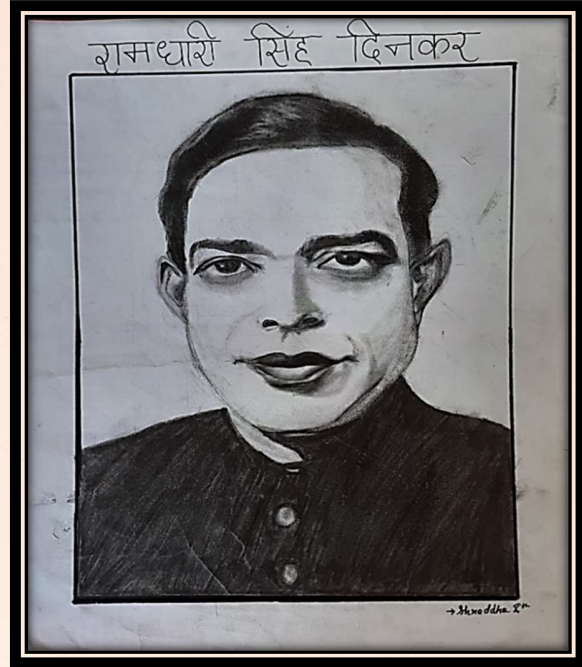 रामधारी सिंह दिनकर
→ Shraddha